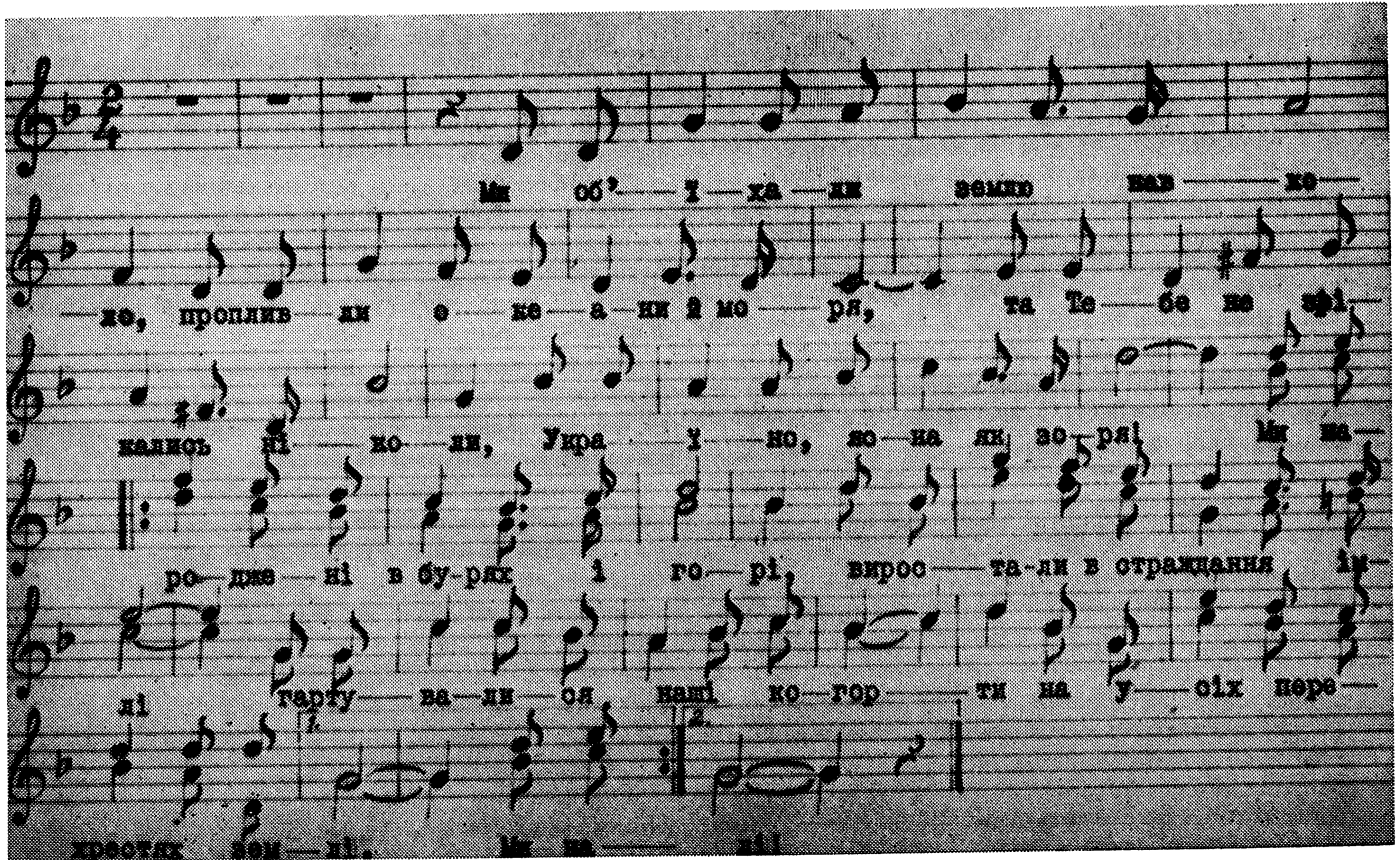 Ми об’—ї—ха—ли землю нав—ко—
—ло, проплив—ли о—ке—а—ни й мо—ря, та Те—бе не стрі—
кались ні—ко—ли, Укра—ї—но, як зо—ря! Ми на—
ро—дже—ні в бу-рях і го—рі, вирос—та-ли в страждання ім—
лі гарту—ва—ли—ся наші ко—гор—ти на у—сіх пере—
1. 2.
хрестях зем—лі. Ми на— лі!